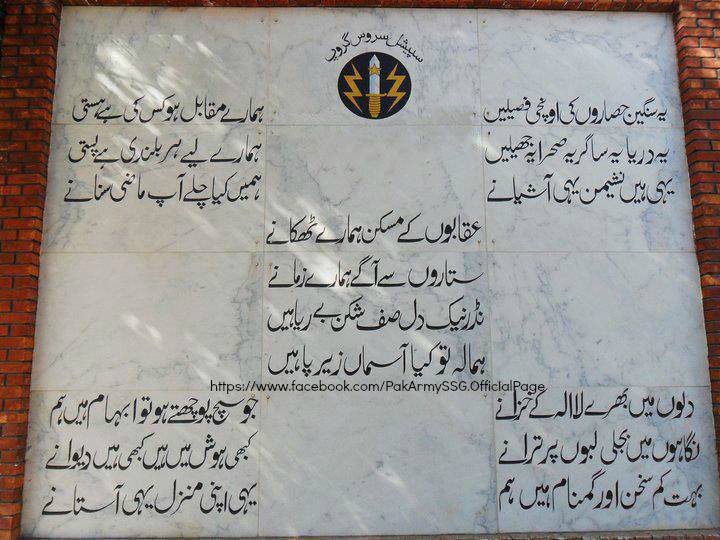 سپیشل سروس گروپ
یہ سنگین حصاروں کی اونچی فصیلیں
ہمارے مقابل ہو کس کی ہے ہستی
یہ دریا یہ ساگر یہ صحرا یہ جھیلیں
ہمارے لیے ہر بلندی ہے پستی
یہی ہیں نشیمن یہی آشیانے
ہمیں کیا چلے آپ ماضی سنانے
عقابوں کے مسکن ہمارے ٹھکانے
ستاروں سے آگے ہمارے زمانے
نڈر نیک دل صف شکن بے ریا ہیں
ہمالہ تو کیا آسماں زیر پا ہیں
https://www.facebook.com/PakArmySSG.OfficialPage
دلوں میں بھرے لا الہ کے خزانے
جو سچ پوچھتے ہو تو ابہام ہیں ہم
نگاہوں میں بجلی لبوں پر ترانے
کبھی ہوش میں ہیں کبھی ہیں دیوانے
بہت کم سخن اور گمنام ہیں ہم
یہی اپنی منزل یہی آستانے